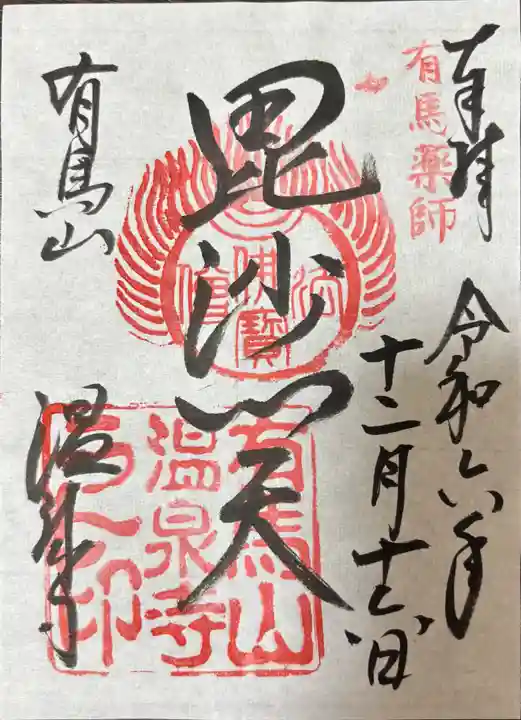 奉拝
有馬薬師
令和六年
十二月十七日
毘沙門天
佛寶
有馬山
温泉寺
有馬山
温泉寺